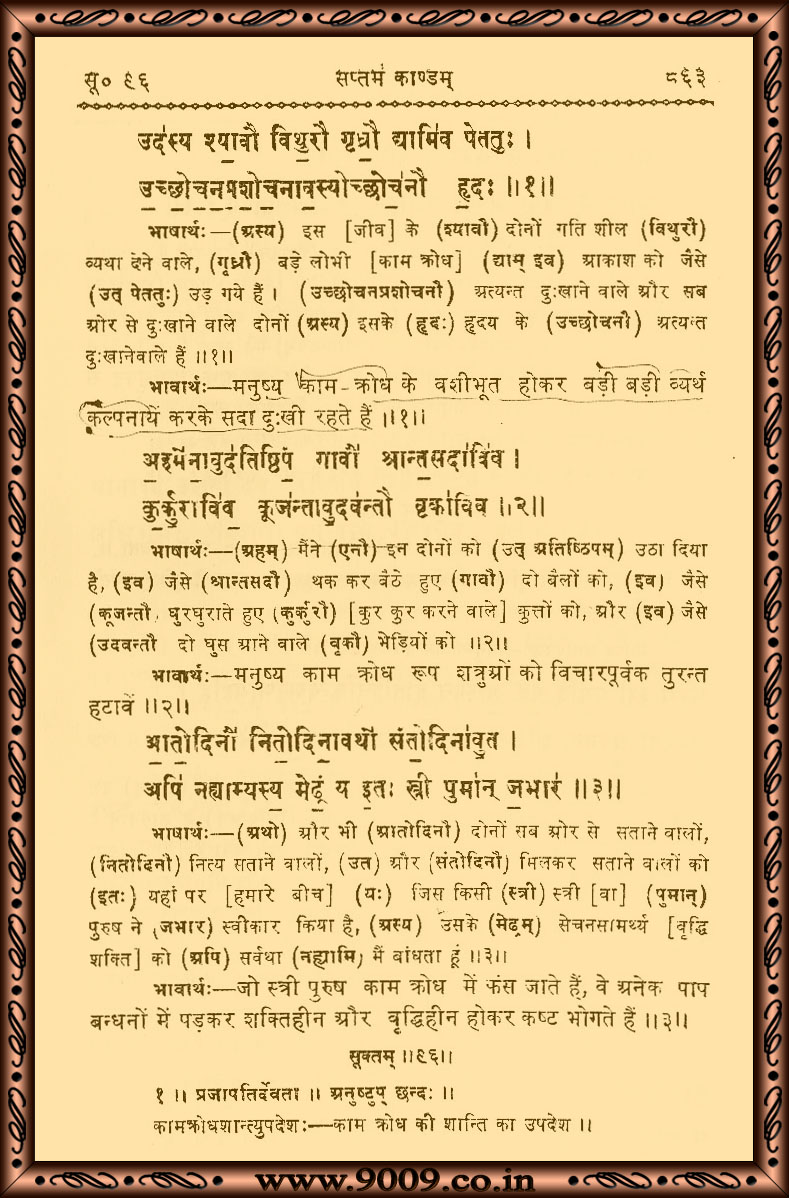 सू० ९६ सप्तमं काण्डम् ८६३
उद॑स्य श्या॒वौ वि॑थु॒रौ गृध्रौ॒ द्यामि॑व पेततुः ।
उ॒च्छो॒च॒न॒प्र॒शो॒च॒नाव॒स्योच्छोच॑नौ हृ॒दः ॥१॥
भाषार्थः—(अस्य) इस [जीव] के (श्यावौ) दोनों गति शील (विथुरौ)
व्यथा देने वाले, (गृध्रौ) बड़े लोभी [काम क्रोध] (द्याम् इव) आकाश को जैसे
(उत् पेततुः) उड़ गये हैं । (उच्छोचनप्रशोचनौ) अत्यन्त दुःखाने वाले और सब
ओर से दुःखाने वाले दोनों (अस्य) इसके (हृदः) हृदय के (उच्छोचनौ) अत्यन्त
दुःखानेवाले हैं ॥१॥
भावार्थः—मनुष्य काम-क्रोध के वशीभूत होकर बड़ी बड़ी व्यर्थ
कल्पनायें करके सदा दुःखी रहते हैं ॥१॥
अ॒हमे॑ना॒वुद॑तिष्ठिपं॒ गावौ॑ श्रान्त॒सदा॑विव ।
कु॒र्कु॒रावि॑व॒ कूज॑न्तावु॒दव॑न्तौ॒ वृका॑विव ॥२॥
भाषार्थः—(अहम्) मैंने (एनौ) इन दोनों को (उत् अतिष्ठिपम्) उठा दिया
है, (इव) जैसे (श्रान्तसदौ) थक कर बैठे हुए (गावौ) दो बैलों को, (इव) जैसे
(कूजन्तौ) घुरघुराते हुए (कुर्कुरौ) [कुर कुर करने वाले] कुत्तों को, और (इव) जैसे
(उदवन्तौ दो घुस आने वाले (वृकौ) भेड़ियों को ॥२॥
भावार्थः—मनुष्य काम क्रोध रूप शत्रुओं को विचारपूर्वक तुरन्त
हटावें ॥२॥
आ॒तो॒दिनौ॑ नितो॒दिना॒वथो॑ संतो॒दिना॑वु॒त ।
अपि॑ नह्याम्यस्य॒ मेढ्रं॒ य इ॒तः स्त्री पुमा॑न् ज॒भार॑ ॥३॥
भाषार्थः—(अथो) और भी (आतोदिनौ) दोनों सब ओर से सताने वालों,
(नितोदिनौ) नित्य सताने वालों, (उत) और (संतोदिनौ) मिलकर सताने वालों को
(इतः) यहां पर [हमारे बीच] (यः) जिस किसी (स्त्री) स्त्री [वा] (पुमान्)
पुरुष ने (जभार) स्वीकार किया है, (अस्य) उसके (मेढ्रम्) सेचनसामर्थ्य [वृद्धि
शक्ति] को (अपि) सर्वथा (नह्यामि) मैं बांधता हूं ॥३॥
भावार्थः—जो स्त्री पुरुष काम क्रोध में फंस जाते हैं, वे अनेक पाप
बन्धनों में पड़कर शक्तिहीन और वृद्धिहीन होकर कष्ट भोगते हैं ॥३॥
सूक्तम् ॥९६॥
१ ॥ प्रजापतिर्देवता ॥ अनुष्टुप् छन्दः ॥
कामक्रोधशान्त्युपदेशः—काम क्रोध की शान्ति का उपदेश ॥
www.9009.co.in